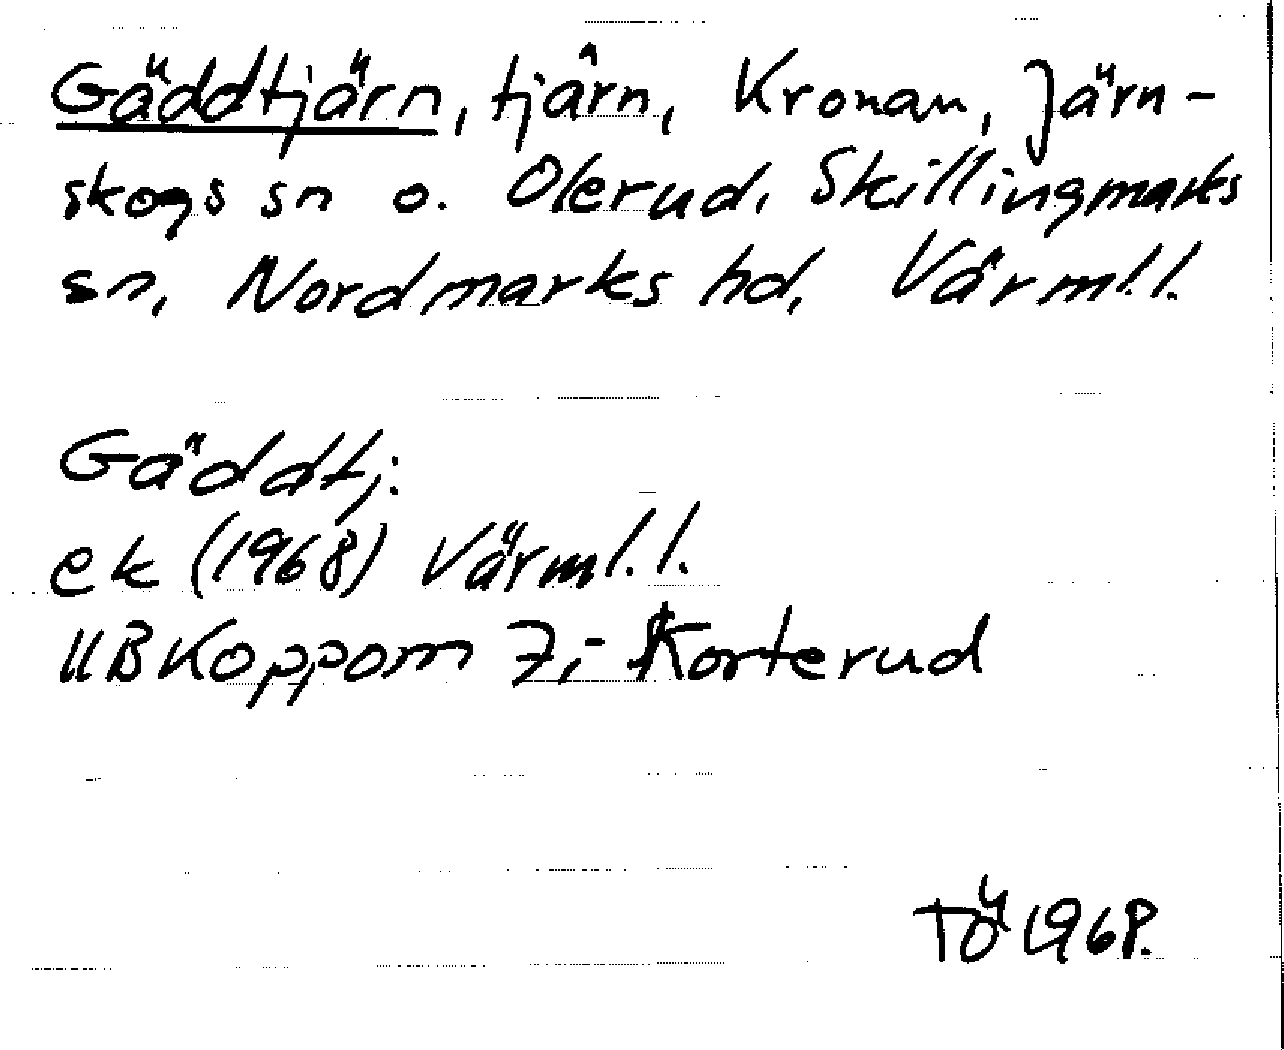 Gäddtjärn, tjärn, Kronan, Järn-
skogs sn o. Olerud, Skillingmarks
sn, Nordmarks hd, Värml. l.
Gäddtj:
ek (1968) Värml. l.
11B Koppom 7;- Korterud
TÖ 1968.